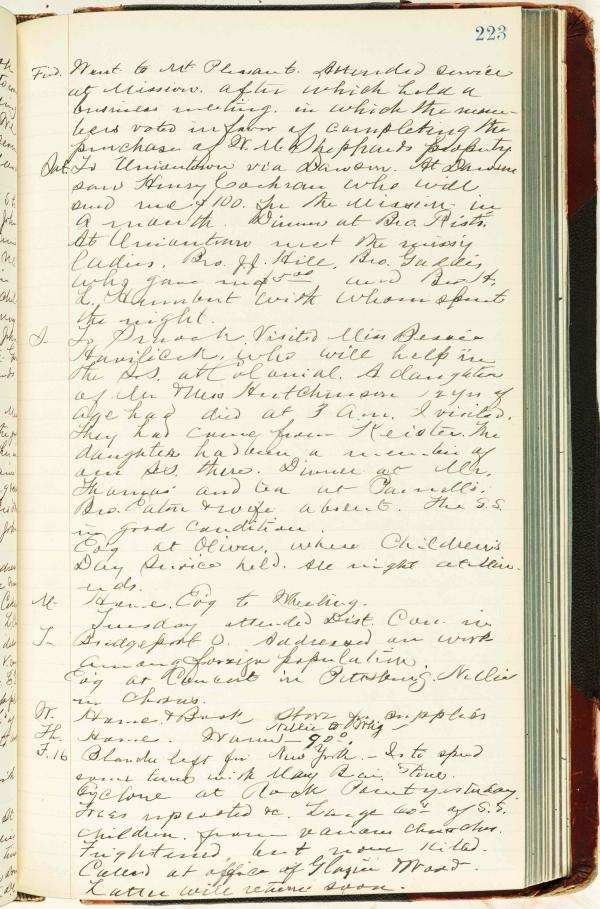 223
Frid. Went to Mt Pleasant. Attended service
at Mission. after which held a
business meeting. in which the mem-
bers voted in favor of completing the
purchase of W. M. Shepherd's property
Sat. To Uniontown via Dawson. At Dawson
saw Henry Cochran who will
send me $100. for the Mission in
a month. Dinner at Bro. Rists.
At Uniontown met the missy
ladies. Bro. J.J. Hill, Bro. Gaddis,
who gave me $5.00 and Bro. H.
L. Humbert with whom spent
the night.
S. To Smock. Visited Miss Bessie
Havilicek, who will help in
the S.S. at Colonial. A daughter
of Mr & Mrs Hutchinson 12 yrs of
age had died at 3 A.m. I visited.
They had come from Keister. The
daughter had been a member of
our S.S. there. Dinner at Mr.
Thomas and tea at Parnells.
Bro. Eaton & wife absent. The S.S.
in good condition.
Evg at Oliver, where Children's
Day Service held. All night at
M. Home. Evg to Wheeling.
Tuesday attended Dist. Con. in
T. Bridgeport O. Addressed on work
among foreign population.
Evg at Concert in Pittsburg. Nellie
in Chorus.
W. Home & Book Store for supplies
Nellie to
Th. Home. Warm - 90°
F. 16 Blanche left for New York. - Is to spend
some time with Mary Stone.
Cyclone at Rock Point yesterday.
Trees uprooted &c. Large no of S.S.
children from various churches.
Frightened but none killed.
Called at office of Glazier Wood.
Latter will return soon.